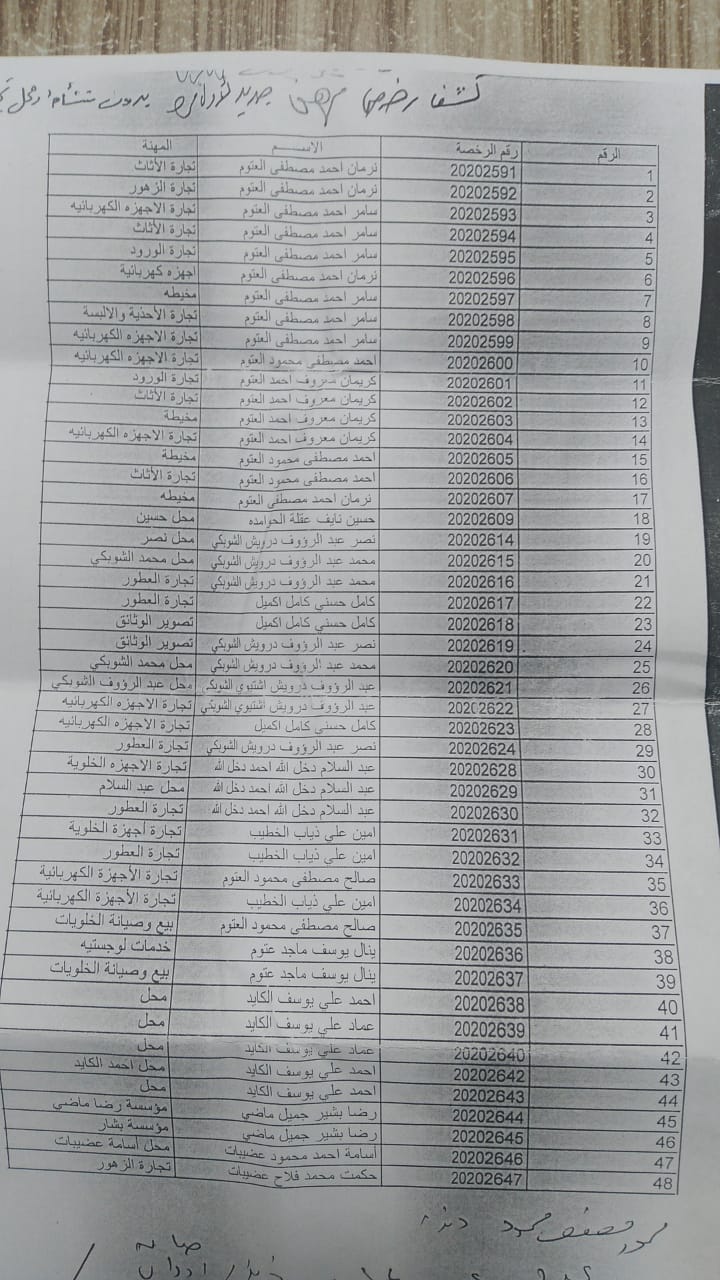 كشف رخص مهن جديد بدون منشأه
الرقم رقم الرخصة الاسم المهنة
1 20202591 نرمان احمد مصطفى العتوم تجارة الأثاث
2 20202592 نرمان احمد مصطفى العتوم تجارة الزهور
3 20202593 سامر احمد مصطفى العتوم تجارة الاجهزه الكهربائيه
4 20202594 سامر احمد مصطفى العتوم تجارة الأثاث
5 20202595 سامر احمد مصطفى العتوم تجارة الورود
6 20202596 نرمان احمد مصطفى العتوم اجهزه كهربائية
7 20202597 سامر احمد مصطفى العتوم مخيطه
8 20202598 سامر احمد مصطفى العتوم تجارة الأحذية والالبسة
9 20202599 سامر احمد مصطفى العتوم تجارة الاجهزه الكهربائيه
10 20202600 احمد مصطفى محمود العتوم تجارة الاجهزه الكهربائيه
11 20202601 كريمان معروف احمد العتوم تجارة الورود
12 20202602 كريمان معروف احمد العتوم تجارة الأثاث
13 20202603 كريمان معروف احمد العتوم مخيطة
14 20202604 كريمان معروف احمد العتوم تجارة الاجهزه الكهربائيه
15 20202605 احمد مصطفى محمود العتوم مخيطة
16 20202606 احمد مصطفى محمود العتوم تجارة الأثاث
17 20202607 نرمان احمد مصطفى العتوم مخيطه
18 20202609 حسين نايف عقلة الحوامده محل حسين
19 20202614 نصر عبد الرؤوف درويش الشوبكي محل نصر
20 20202615 محمد عبد الرؤوف درويش الشوبكي محل محمد الشوبكي
21 20202616 محمد عبد الرؤوف درويش الشوبكي تجارة العطور
22 20202617 كامل حسني كامل اكميل تجارة العطور
23 20202618 كامل حسني كامل اكميل تصوير الوثائق
24 20202619 نصر عبد الرؤوف درويش الشوبكي تصوير الوثائق
25 20202620 محمد عبد الرؤوف درويش الشوبكي محل محمد الشوبكي
26 20202621 عبد الرؤوف درويش اشتيوي الشوبكي محل عبد الرؤوف الشوبكي
27 20202622 عبد الرؤوف درويش اشتيوي الشوبكي تجارة الاجهزه الكهربائيه
28 20202623 كامل حسني كامل اكميل تجارة الاجهزه الكهربائيه
29 20202624 نصر عبد الرؤوف درويش الشوبكي تجارة العطور
30 20202628 عبد السلام دخل الله احمد دخل الله تجارة الاجهزه الخلوية
31 20202629 عبد السلام دخل الله احمد دخل الله محل عبد السلام
32 20202630 عبد السلام دخل الله احمد دخل الله تجارة العطور
33 20202631 امين علي ذياب الخطيب تجارة أجهزة الخلوية
34 20202632 امين علي ذياب الخطيب تجارة العطور
35 20202633 صالح مصطفى محمود العتوم تجارة الأجهزة الكهربائية
36 20202634 امين علي ذياب الخطيب تجارة الأجهزة الكهربائية
37 20202635 صالح مصطفى محمود العتوم بيع وصيانة الخلويات
38 20202636 ينال يوسف ماجد عتوم خدمات لوجستيه
39 20202637 ينال يوسف ماجد عتوم بيع وصيانة الخلويات
40 20202638 احمد علي يوسف الكايد محل
41 20202639 عماد علي يوسف الكايد محل
42 20202640 عماد علي يوسف الكايد محل
43 20202642 احمد علي يوسف الكايد محل احمد الكايد
44 20202643 احمد علي يوسف الكايد محل
45 20202644 رضا بشير جميل ماضي مؤسسة رضا ماضي
46 20202645 رضا بشير جميل ماضي مؤسسة بشار
47 20202646 أسامة احمد محمود عضيبات محل أسامة عضيبات
48 20202647 حكمت محمد فلاح عضيبات تجارة الزهور